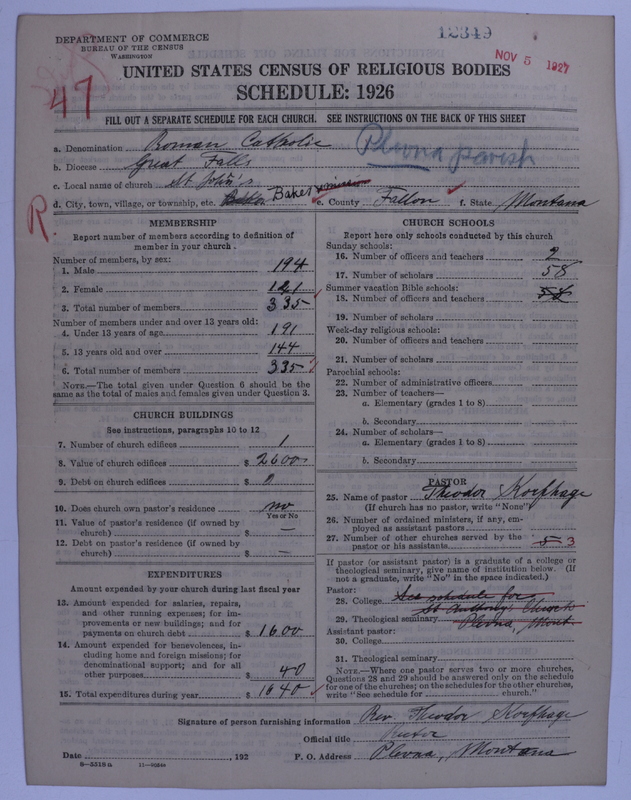 12349
DEPARTMENT OF COMMERCE
BUREAU OF THE CENSUS
WASHINGTON
NOV 5 1927
47
UNITED STATES CENSUS OF RELIGIOUS BODIES
SCHEDULE: 1926
FILL OUT A SEPARATE SCHEDULE FOR EACH CHURCH. SEE INSTRUCTIONS ON THE BACK OF THIS SHEET
a. Denomination Roman Catholic
Plevna parish
b. Diocese Great Falls
c. Local name of church St. John's
R.
d. City, town, village, or township, etc. Baker e. County Fallon f. State Montana
MEMBERSHIP
Report number of members according to definition of
member in your church.
Number of members, by sex:
1. Male 194
2. Female 141
3. Total number of members 335
Number of members under and over 13 years old:
4. Under 13 years of age 191
5. 13 years old and over 144
6. Total number of members 335
NOTE.—The total given under Question 6 should be the
same as the total of males and females given under Question 3.
CHURCH BUILDINGS
See instructions, paragraphs 10 to 12
7. Number of church edifices 1
8. Value of church edifices $ 2600
9. Debt on church edifices $ 0
10. Does church own pastor's residence no
Yes or No
11. Value of pastor's residence (if owned by
church) $ —
12. Debt on pastor's residence (if owned by
church) $ —
EXPENDITURES
Amount expended by your church during last fiscal year
13. Amount expended for salaries, repairs,
and other running expenses; for im-
provements or new buildings; and for
payments on church debt $ 1600
14. Amount expended for benevolences, in-
cluding home and foreign missions; for
denominational support; and for all
other purposes $ 40
15. Total expenditures during year $ 1640
CHURCH SCHOOLS
Report here only schools conducted by this church
Sunday schools:
16. Number of officers and teachers 2
17. Number of scholars 58
Summer vacation Bible schools:
18. Number of officers and teachers 58
19. Number of scholars
Week-day religious schools:
20. Number of officers and teachers
21. Number of scholars
Parochial schools:
22. Number of administrative officers
23. Number of teachers—
a. Elementary (grades 1 to 8)
b. Secondary
24. Number of scholars—
a. Elementary (grades 1 to 8)
b. Secondary
PASTOR
25. Name of pastor Theodor Korphage
(If church has no pastor, write "None")
26. Number of ordained ministers, if any, em-
ployed as assistant pastors
27. Number of other churches served by the
pastor or his assistants 5 3
If pastor (or assistant pastor) is a graduate of a college or
theological seminary, give name of institution below. (If
not a graduate, write "No" in the space indicated.)
Pastor:
28. College See schedule for
St Anthony's Church
29. Theological seminary Plevna, Mont.
Assistant pastor:
30. College
31. Theological seminary
NOTE.—Where one pastor serves two or more churches,
Questions 28 and 29 should be answered only on the schedule
for one of the churches; on the schedules for the other churches,
write "See schedule for church."
Signature of person furnishing information Rev. Theodor Korphage
Official title Rector
Date , 192 P. O. Address Plevna, Montana
8—5318a